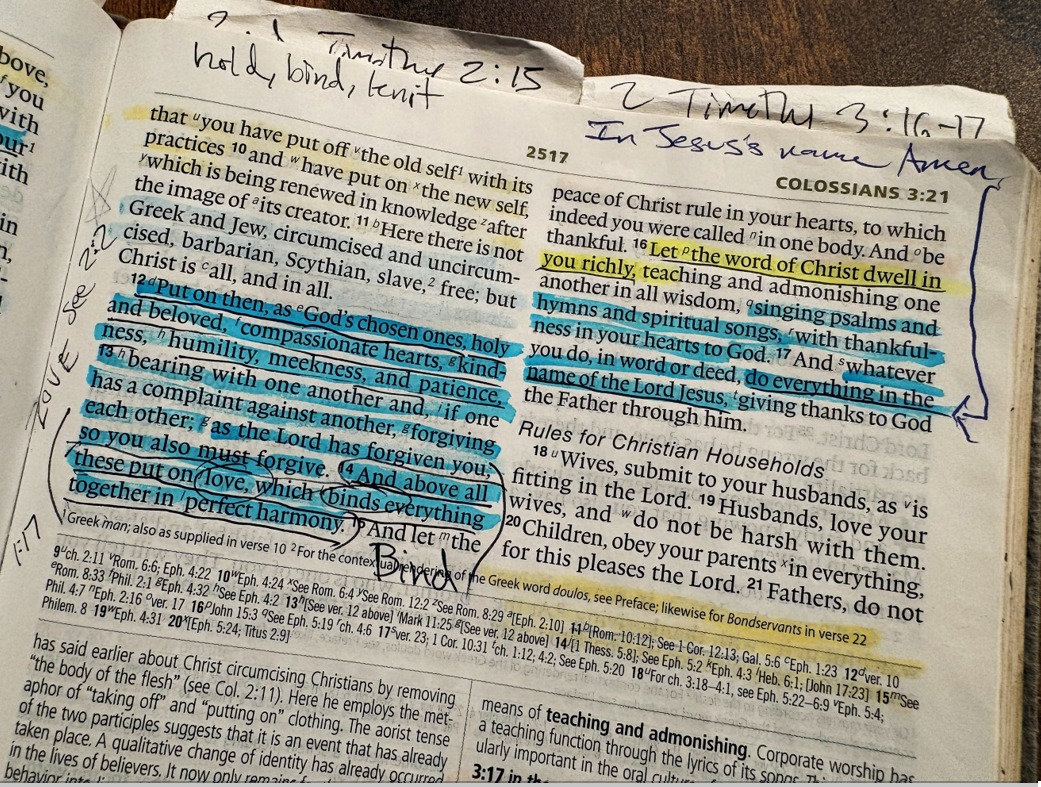 2 Timothy 2:15
hold, bind, knit
2 Timothy 3:16-17
In Jesus's name Amen
bove,
f you
with
our¹
ith
in
n,
2517
COLOSSIANS 3:21
that ᵘyou have put off ᵛthe old self¹ with its
practices 10 and ʷhave put on ˣthe new self,
ʸwhich is being renewed in knowledge ᶻafter
the image of ᵃits creator. 11 ᵇHere there is not
Greek and Jew, circumcised and uncircum-
cised, barbarian, Scythian, slave,² free; but
Christ is ᶜall, and in all.
12 ᵈPut on then, as ᵉGod's chosen ones, holy
and beloved, ᶠcompassionate hearts, ᵍkind-
ness, ʰhumility, meekness, and patience,
13 ʰbearing with one another and, ⁱif one
has a complaint against another, ᵍforgiving
each other; ᵍas the Lord has forgiven you,
so you also must forgive. 14 And above all
these put on ʲlove, which ᵏbinds everything
together in ˡperfect harmony. 15 And let ᵐthe
Bind
LOVE see 2:2
1:17
peace of Christ rule in your hearts, to which
indeed you were called ⁿin one body. And ᵒbe
thankful. 16 Let ᵖthe word of Christ dwell in
you richly, teaching and admonishing one
another in all wisdom, ᑫsinging psalms and
hymns and spiritual songs, ʳwith thankful-
ness in your hearts to God. 17 And ˢwhatever
you do, in word or deed, do everything in the
name of the Lord Jesus, ᵗgiving thanks to God
the Father through him.
Rules for Christian Households
18 ᵘWives, submit to your husbands, as ᵛis
fitting in the Lord. 19 Husbands, love your
wives, and ʷdo not be harsh with them.
20 Children, obey your parents ˣin everything,
for this pleases the Lord. 21 Fathers, do not
¹ Greek man; also as supplied in verse 10 ² For the contextual rendering of the Greek word doulos, see Preface; likewise for Bondservants in verse 22
9 ᵘch. 2:11 ᵛRom. 6:6; Eph. 4:22 10 ʷEph. 4:24 ˣSee Rom. 6:4 ʸSee Rom. 12:2 ᶻSee Rom. 8:29 ᵃ[Eph. 2:10] 11 ᵇ[Rom. 10:12]; See 1 Cor. 12:13; Gal. 5:6 ᶜEph. 1:23 12 ᵈver. 10
ᵉRom. 8:33 ᶠPhil. 2:1 ᵍEph. 4:32 ʰSee Eph. 4:2 13 ʰ[See ver. 12 above] ⁱMark 11:25 ᵍ[See ver. 12 above] 14 ʲ[1 Thess. 5:8]; See Eph. 5:2 ᵏEph. 4:3 ˡHeb. 6:1; [John 17:23] 15 ᵐSee
Phil. 4:7 ⁿEph. 2:16 ᵒver. 17 16 ᵖJohn 15:3 ᑫSee Eph. 5:19 ʳch. 4:6 17 ˢver. 23; 1 Cor. 10:31 ᵗch. 1:12; 4:2; See Eph. 5:20 18 ᵘFor ch. 3:18–4:1, see Eph. 5:22–6:9 ᵛEph. 5:4;
Philem. 8 19 ʷEph. 4:31 20 ˣ[Eph. 5:24; Titus 2:9]
has said earlier about Christ circumcising Christians by removing
"the body of the flesh" (see Col. 2:11). Here he employs the met-
aphor of "taking off" and "putting on" clothing. The aorist tense
of the two participles suggests that it is an event that has already
taken place. A qualitative change of identity has already occurred
in the lives of believers. It now only remains
behavior
means of teaching and admonishing. Corporate worship has
a teaching function through the lyrics of its songs.
ularly important in the oral culture
3:17 in the